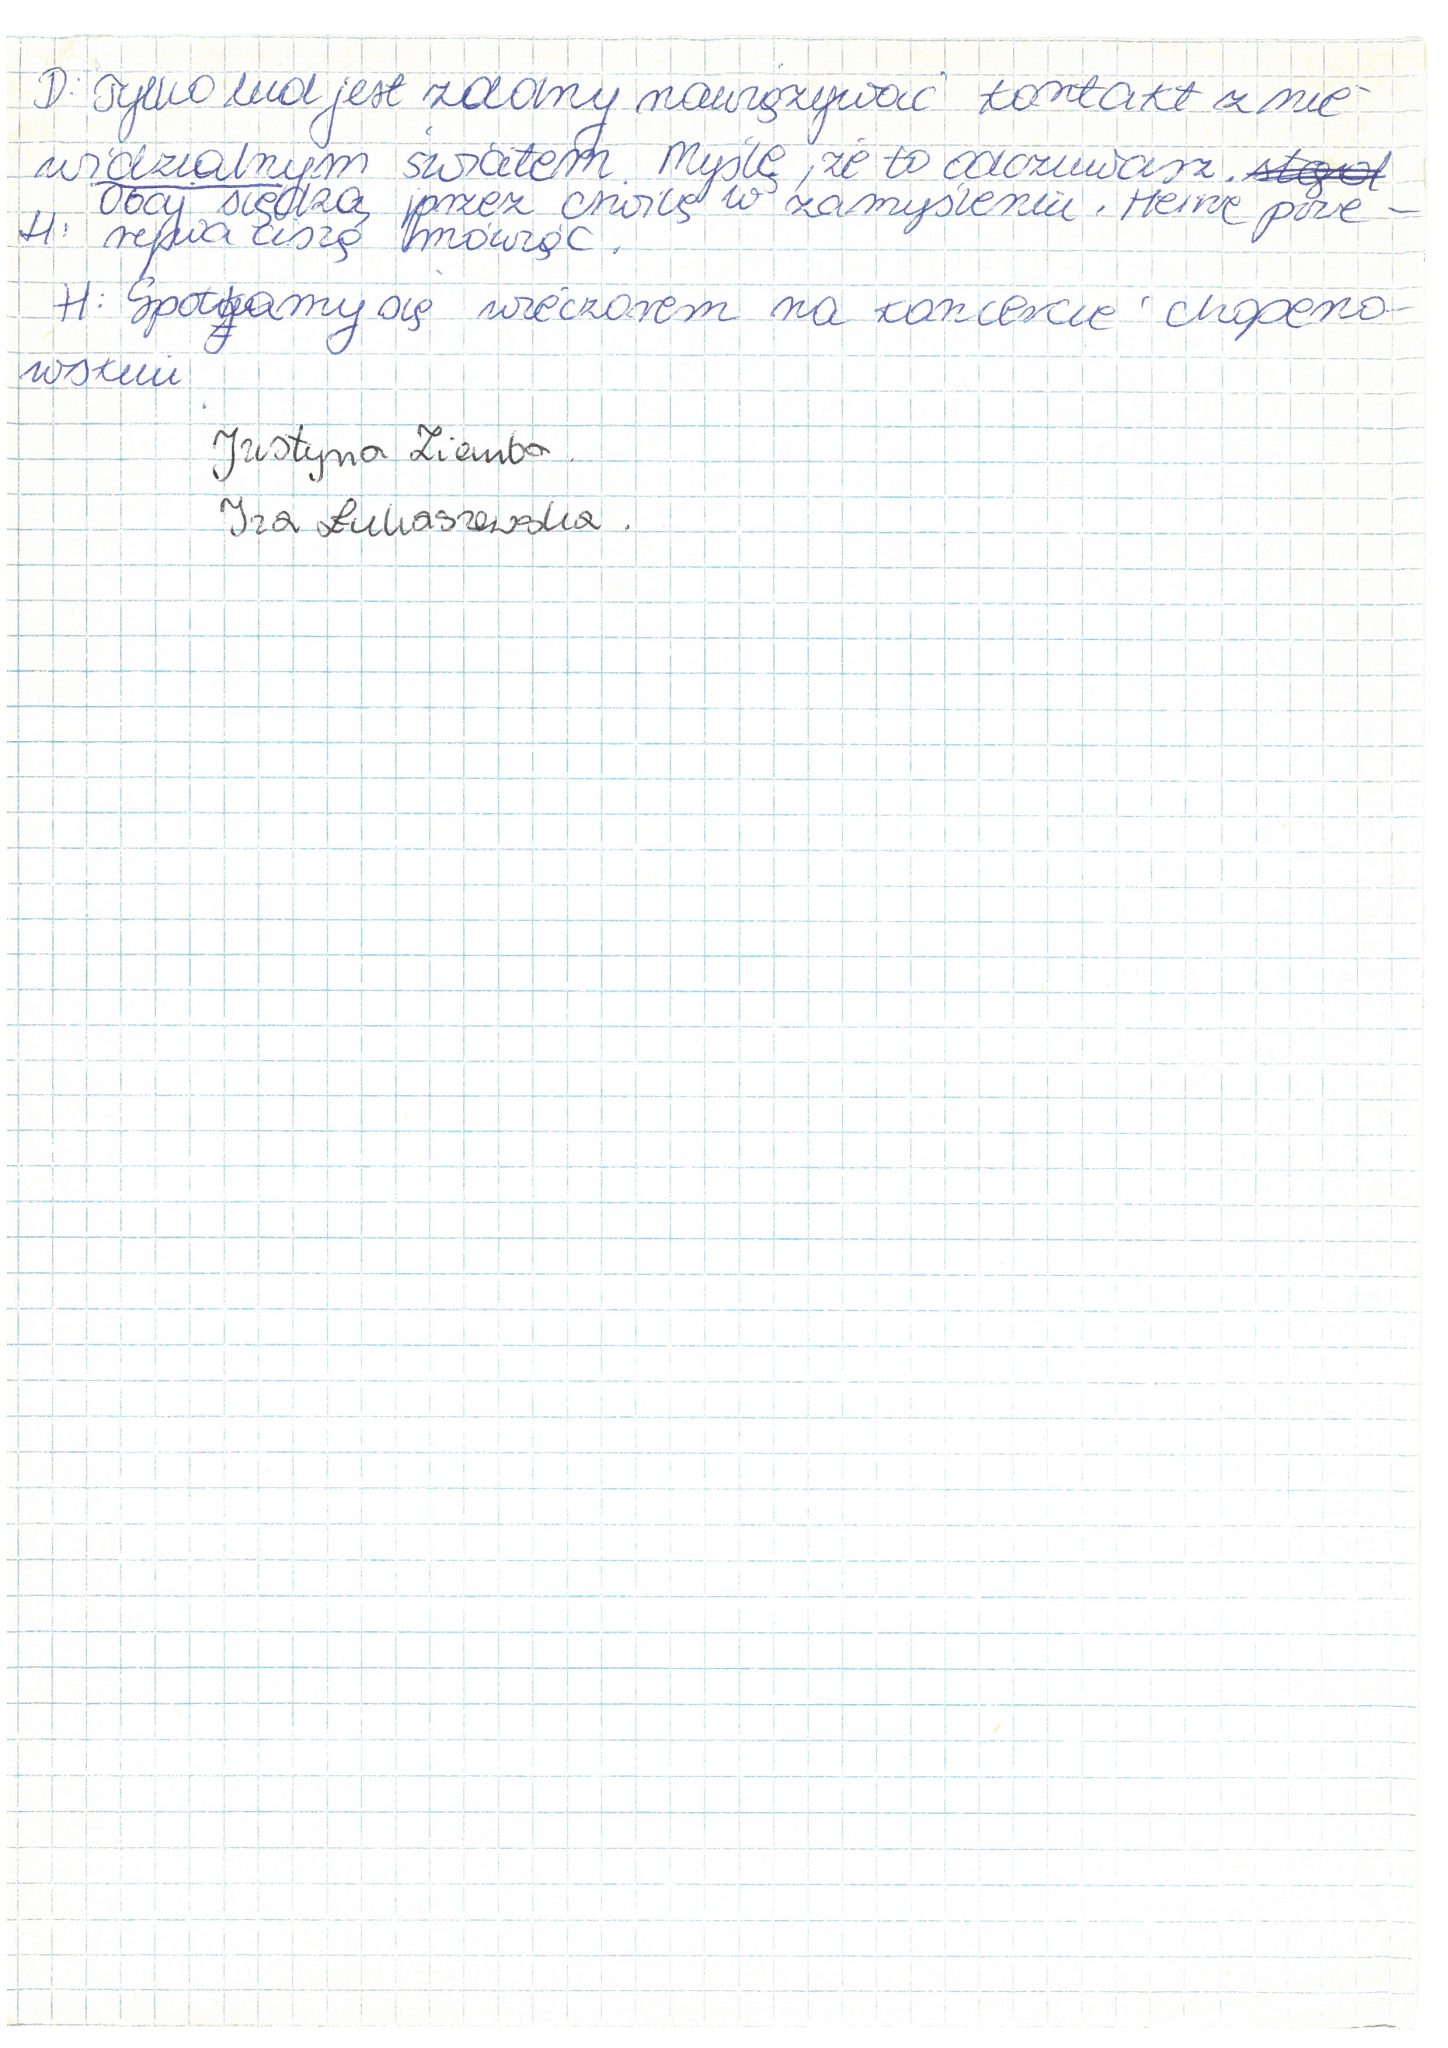 D: Tylko lud jest zdolny nawiązywać kontakt z nie-
widzialnym światem. Myślę, że to odczuwasz.
Obaj siędzą przez chwilę w zamyśleniu. Heine prze-
H: rerywa ciszę mówiąc.
H: Spotkamy się wieczorem na koncercie chopeno-
wskim
Justyna Ziemba.
Iza Łukaszewska.